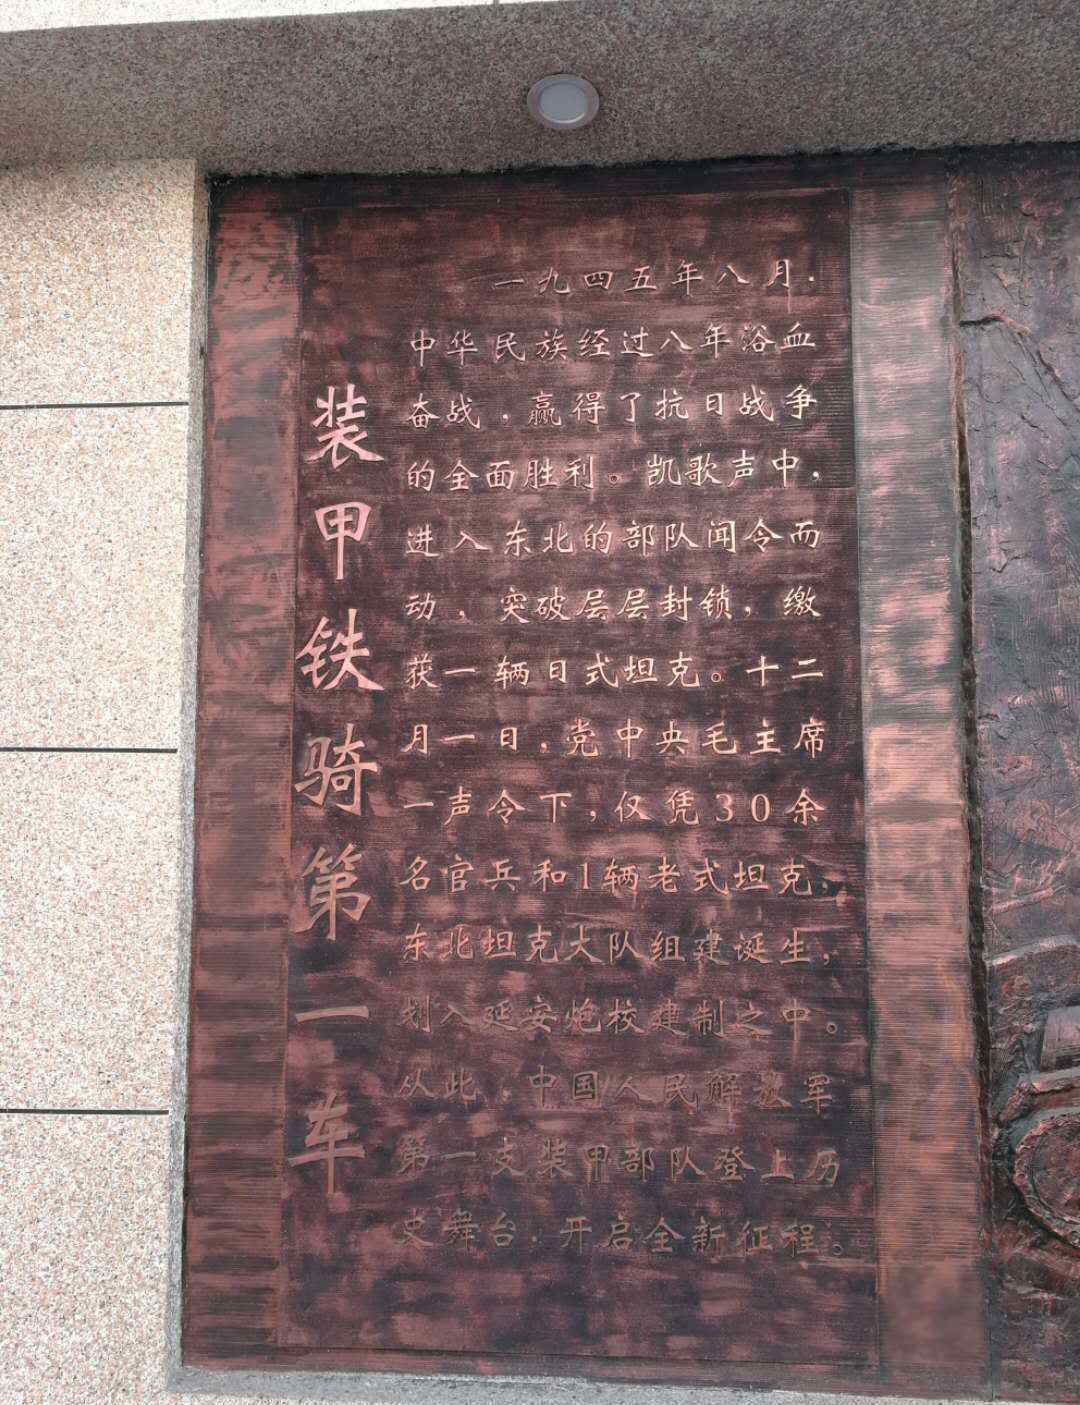 装甲铁骑第一车
一九四五年八月，
中华民族经过八年浴血
奋战，赢得了抗日战争
的全面胜利。凯歌声中，
进入东北的部队闻令而
动，突破层层封锁，缴
获一辆日式坦克。十二
月一日，党中央毛主席
一声令下，仅凭30余
名官兵和1辆老式坦克，
东北坦克大队组建诞生，
划入延安炮校建制之中。
从此，中国人民解放军
第一支装甲部队登上历
史舞台，开启全新征程。